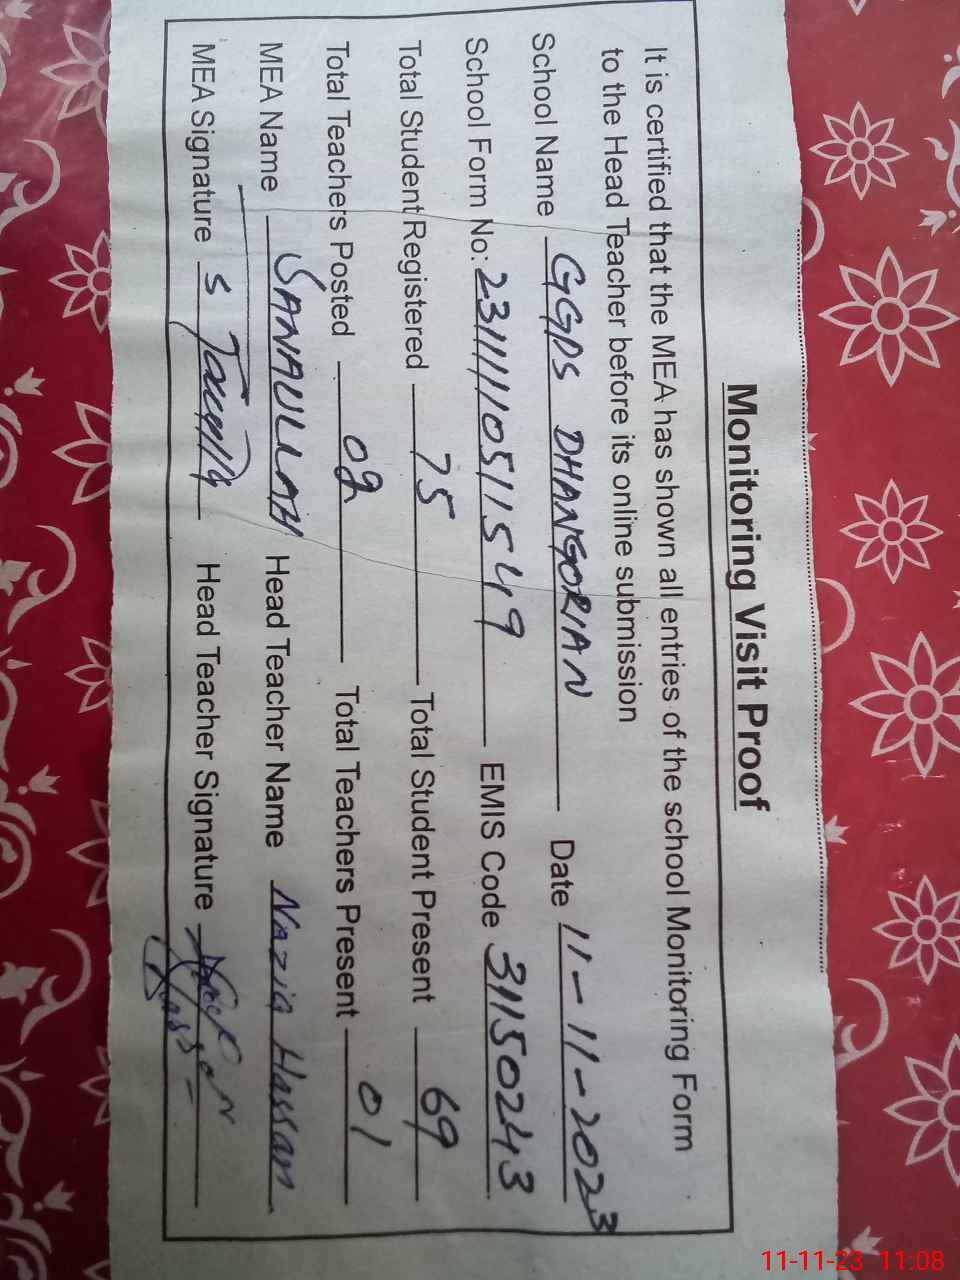 Monitoring Visit Proof
It is certified that the MEA has shown all entries of the school Monitoring Form
to the Head Teacher before its online submission
School Name GGPS DHANGORIAN Date 11-11-2023
School Form No: 2311110511549 EMIS Code 31150243
Total Student Registered 75 Total Student Present 69
Total Teachers Posted 02 Total Teachers Present 01
MEA Name SANAULLAH Head Teacher Name Nazia Hassan
MEA Signature Head Teacher Signature
11-11-23 11:08